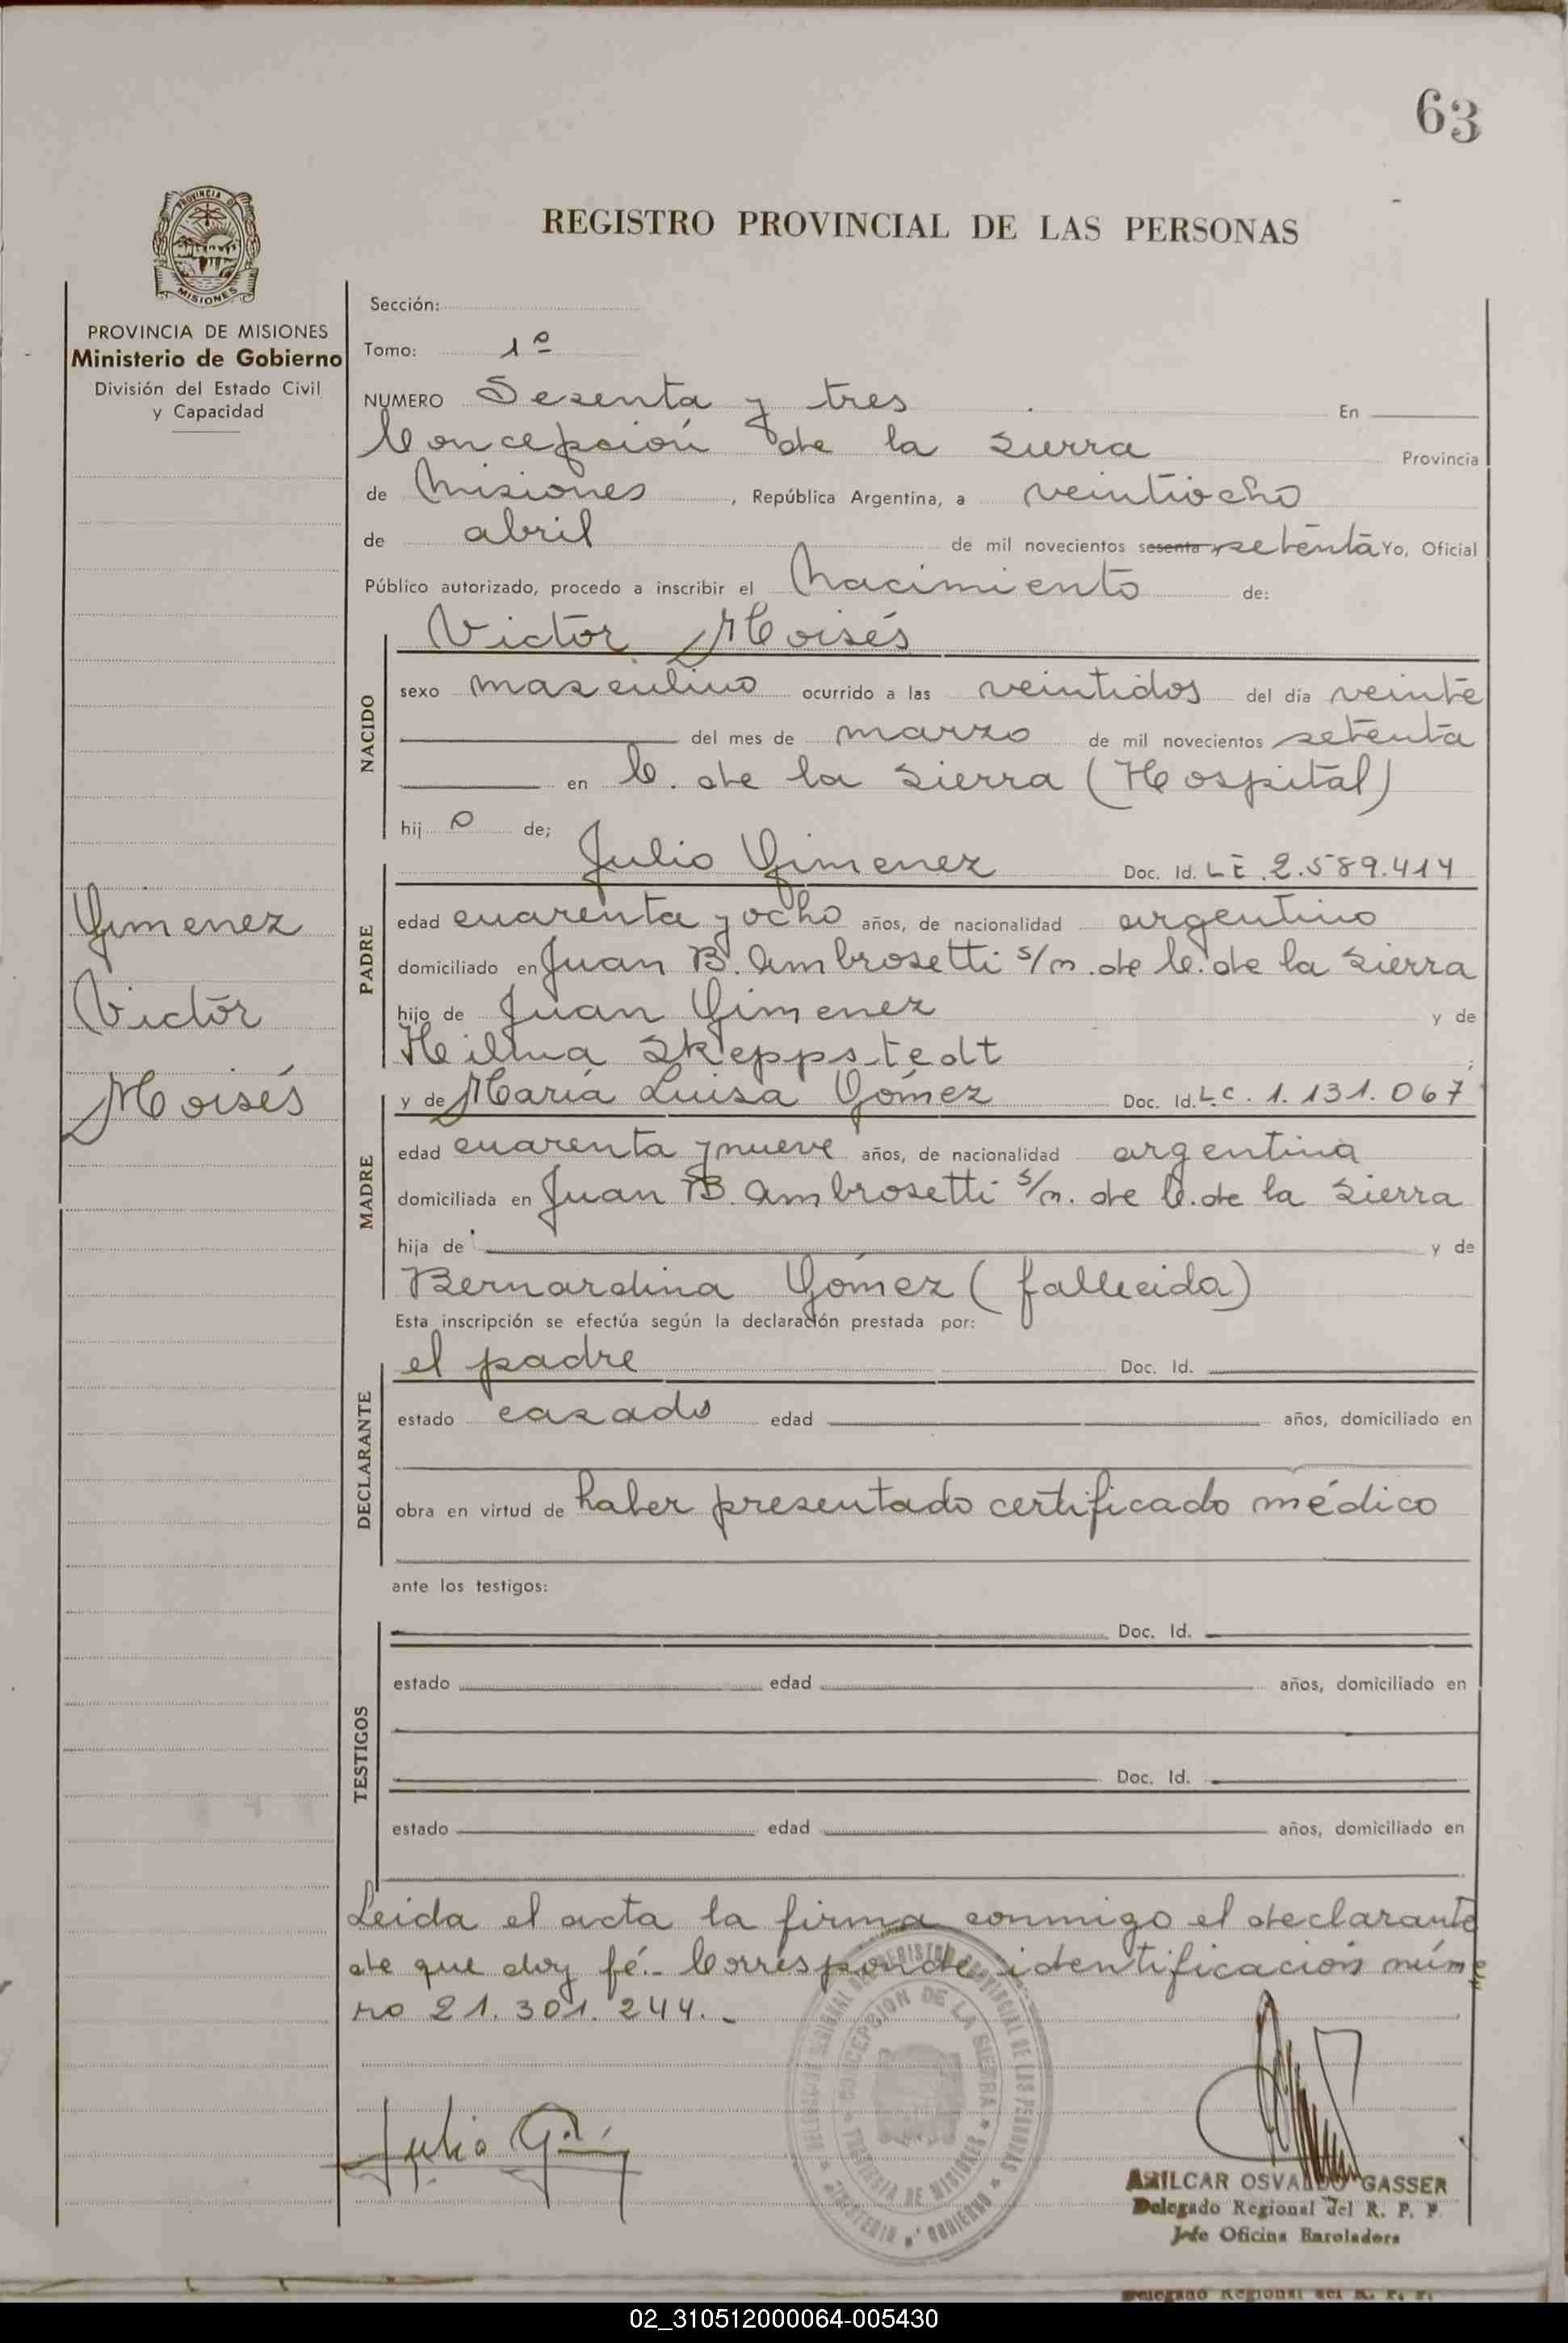 63
PROVINCIA DE
MISIONES
REGISTRO PROVINCIAL DE LAS PERSONAS
PROVINCIA DE MISIONES
Ministerio de Gobierno
División del Estado Civil
y Capacidad
Gimenez
Victor
Moisés
Sección:
Tomo: 1º
NUMERO Sesenta y tres En
Concepción de la Sierra Provincia
de Misiones, República Argentina, a veintiocho
de abril de mil novecientos sesenta setenta Yo, Oficial
Público autorizado, procedo a inscribir el Nacimiento de:
Victor Moisés
NACIDO
sexo masculino ocurrido a las veintidos del día veinte
del mes de marzo de mil novecientos setenta
en C. de la Sierra (Hospital)
hij o de;
PADRE
Julio Gimenez Doc. Id. LE. 2.589.414
edad cuarenta y ocho años, de nacionalidad argentino
domiciliado en Juan B. Ambrosetti s/n. de C. de la Sierra
hijo de Juan Gimenez y de
Hilma Skeppstedt ;
MADRE
y de María Luisa Gómez Doc. Id. L.C. 1.131.067
edad cuarenta y nueve años, de nacionalidad argentina
domiciliada en Juan B. Ambrosetti s/n. de C. de la Sierra
hija de y de
Bernardina Gómez (fallecida)
Esta inscripción se efectúa según la declaración prestada por:
DECLARANTE
el padre Doc. Id.
estado casado edad años, domiciliado en
obra en virtud de haber presentado certificado médico
ante los testigos:
TESTIGOS
Doc. Id.
estado edad años, domiciliado en
Doc. Id.
estado edad años, domiciliado en
Leida el acta la firma conmigo el declarante
de que doy fé.- Corresponde identificación núme
ro 21.301.244.-
CONCEPCION DE LA SIERRA
PROVINCIA DE MISIONES
MINISTERIO GOBIERNO
Julio
AMILCAR OSVALDO GASSER
Delegado Regional del R. P. P.
Jefe Oficina Enroladora
Delegado Regional del R. P. P.
02_310512000064-005430